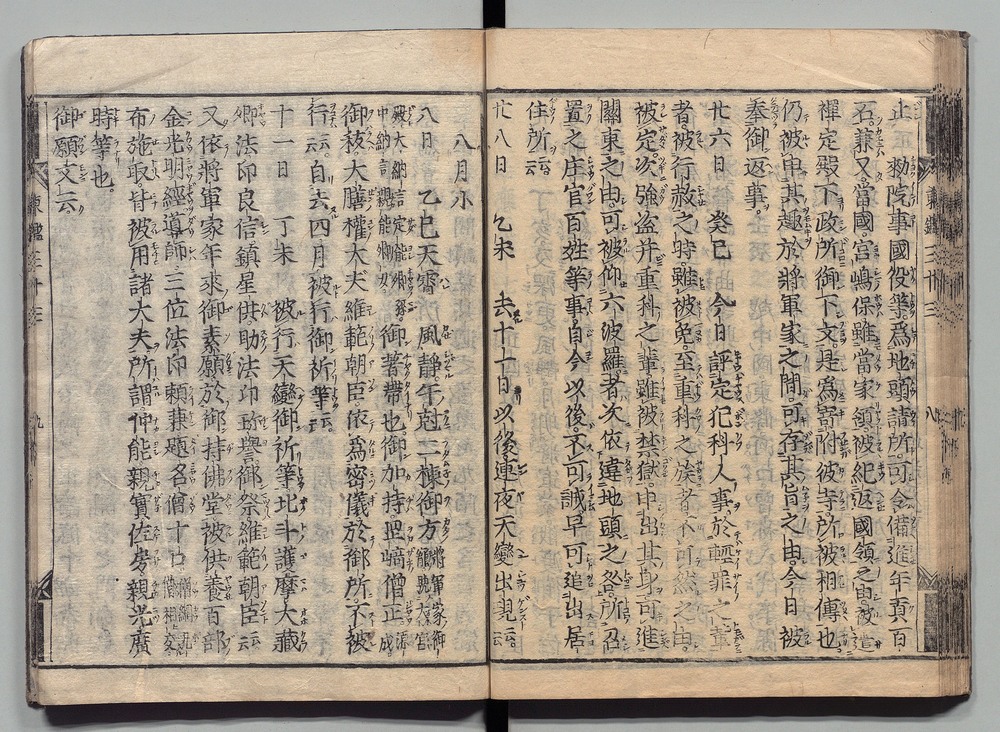 止正税院事國役等爲地頭請所可令備進年貢百
石兼又當國宮嶋保雖當家領被紀返國領之由被
禪定殿下政所御下文是爲寄附彼寺所被相傳也
仍被申其趣於將軍家之間可存其旨之由今日被
奉御返事
廿六日 癸巳 今日評定犯科人事於輕罪之輩
者被行赦之時雖被免至重科之族者不可然之由
被定次強盗并重科之輩雖被禁獄申出其身可進
關東之由可被仰六波羅者次依違地頭之咎所召
置之庄官百姓等事自今以後不可誡早可追出居
住所云云
廿八日 乙未 去十一日以後連夜天變出現云云
八月小
八日 乙巳天霽風静午剋二棟御方將軍家御
寵號大宮
殿大納言定能卿孫
中納言親能卿女御著帶也御加持罡崎僧正成
御秡大膳權大夫維範朝臣依爲密儀於御所不被
行云云自去四月被行御祈等云云
十一日 丁未 被行天變御祈等北斗護摩大藏
卿法印良信鎮星供助法印珎譽御祭維範朝臣云云
又依將軍家年來御素願於御持佛堂被供養百部
金光明經導師三位法印頼兼題名僧十口僧綱凡
僧相交
布施取皆被用諸大夫所謂仲能親實佐房親光廣
時等也
御願文云云
東鑑三十三 八
東鑑三十三 九